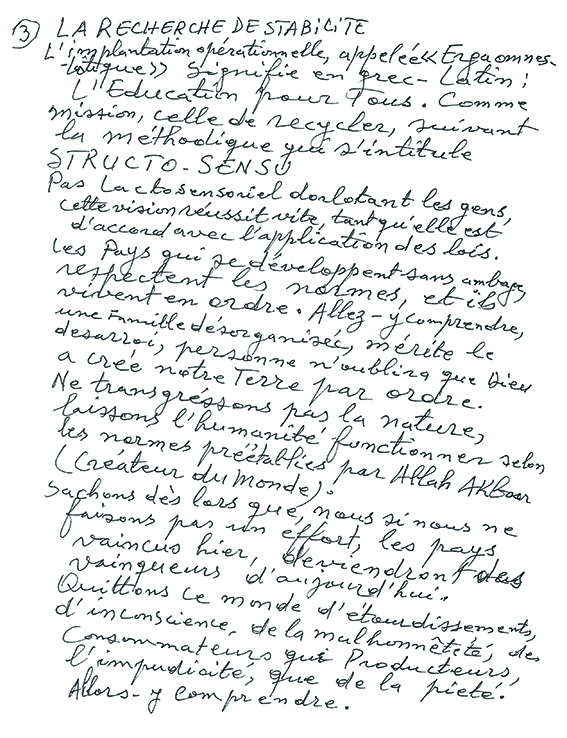 ③ LA RECHERCHE DE STABILITE
L'implantation opérationnelle, appelée << Ergaomnes-
-lotique>> signifie en grec-Latin:
L'Education pour Tous. Comme
mission, celle de recycler, suivant
la méthodique qui s'intitule
STRUCTO-SENSU
Pas Lactosensoriel dorlotant les gens,
cette vision réussit vite, tant qu'elle est
d'accord avec l'application des lois.
Les Pays qui se développent sans ambage,
respectent les normes, et ils
vivent en ordre. Allez-y comprendre,
une Famille désorganisée, mérite le
desarroi, personne n'oublira que Dieu
a créé notre Terre par ordre.
Ne transgréssons pas la nature,
laissons l'humanité fonctionner selon
les normes préétablies par Allah Akbar
(Créateur du Monde).
Sachons dès lors que, nous si nous ne
faisons pas un effort, les pays
vaincus hier, deviendront des
vainqueurs d'aujourd'hui.
Quittons ce monde d'étourdissements,
d'inconscience, de la malhonnêtété, des
Consommateurs qui Producteurs,
l'impudicité, que de la piété.
Allors-y comprendre.